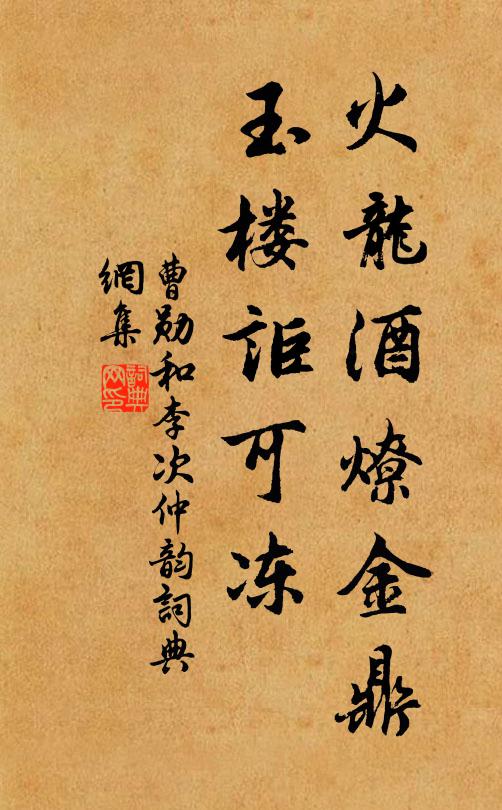 火龍酒燎金鼎
玉楼詎可冻
曹勋和李次仲韵詞典
網集
詞典
网印